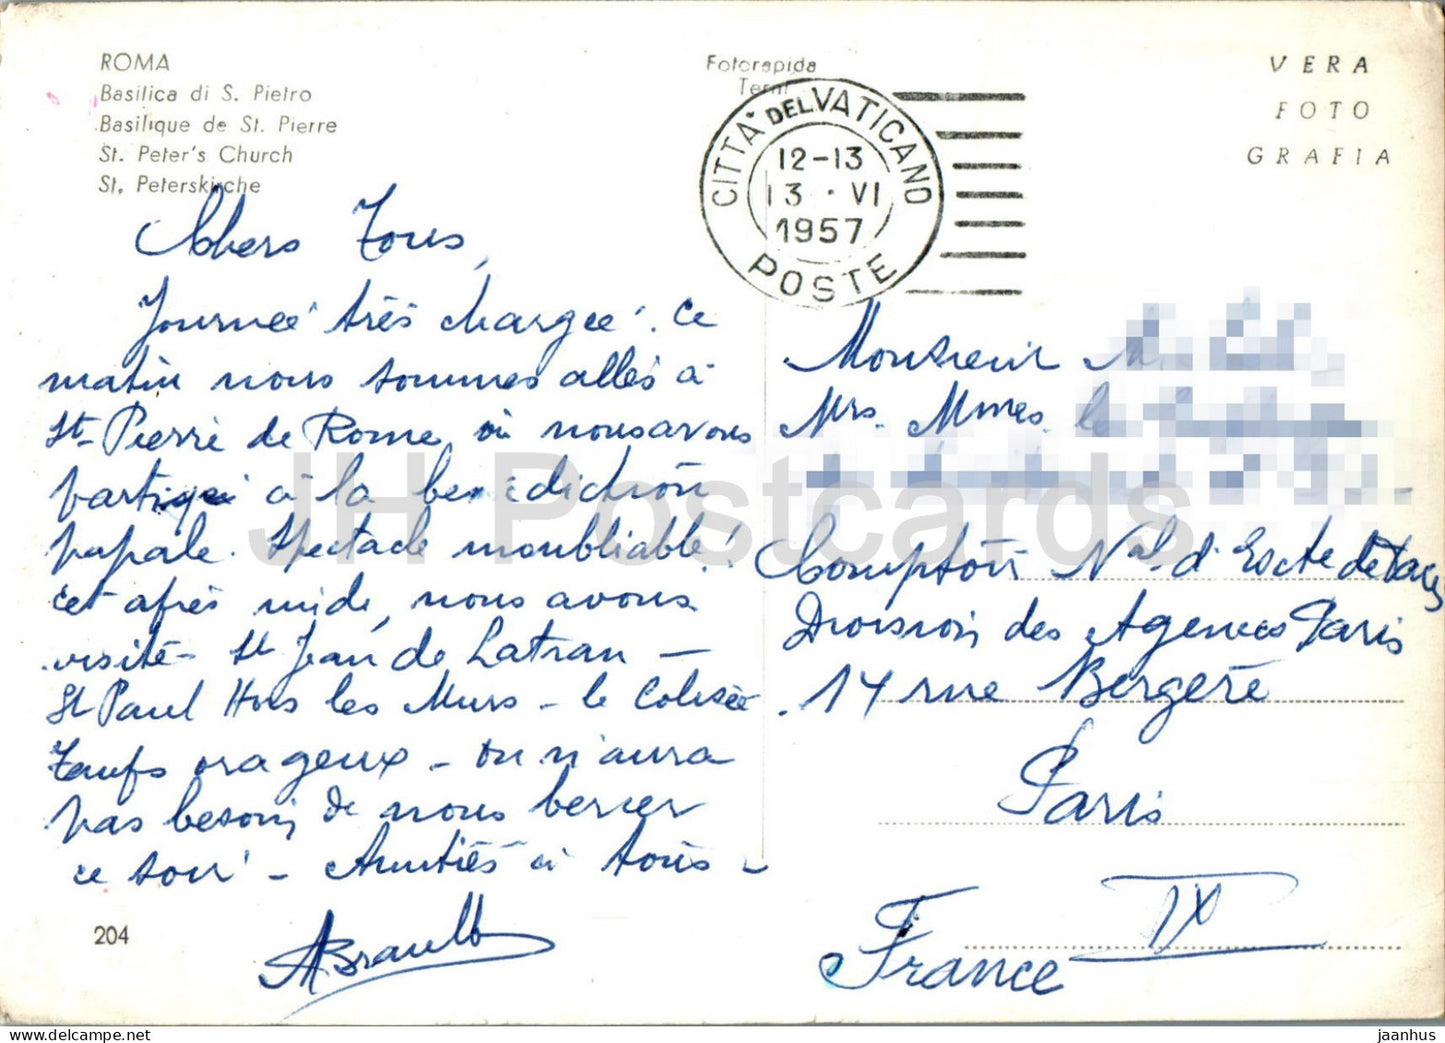 ROMA
Basilica di S. Pietro
Basilique de St. Pierre
St. Peter's Church
St. Peterskirche
Fotorapida
Terni
VERA
FOTO
GRAFIA
CITTA' DEL VATICANO
12-13
13 · VI
1957
POSTE
Chers Tous,
Journée très chargée. Ce
matin nous sommes allés à
St Pierre de Rome, où nous avons
participé à la bénédiction
papale. Spectacle inoubliable!
Cet après midi, nous avons
visité St Jean de Latran —
St Paul Hors les Murs - le Colisée
Temps orageux - on n'aura
pas besoin de nous bercer
ce soir - Amitiés à tous -
204
Monsieur
Mrs. Mmes. le
Comptoir Nal d'Escte de Paris
Division des Agences Paris
14 rue Bergère
Paris
IX
France
JH Postcards
jaanhus